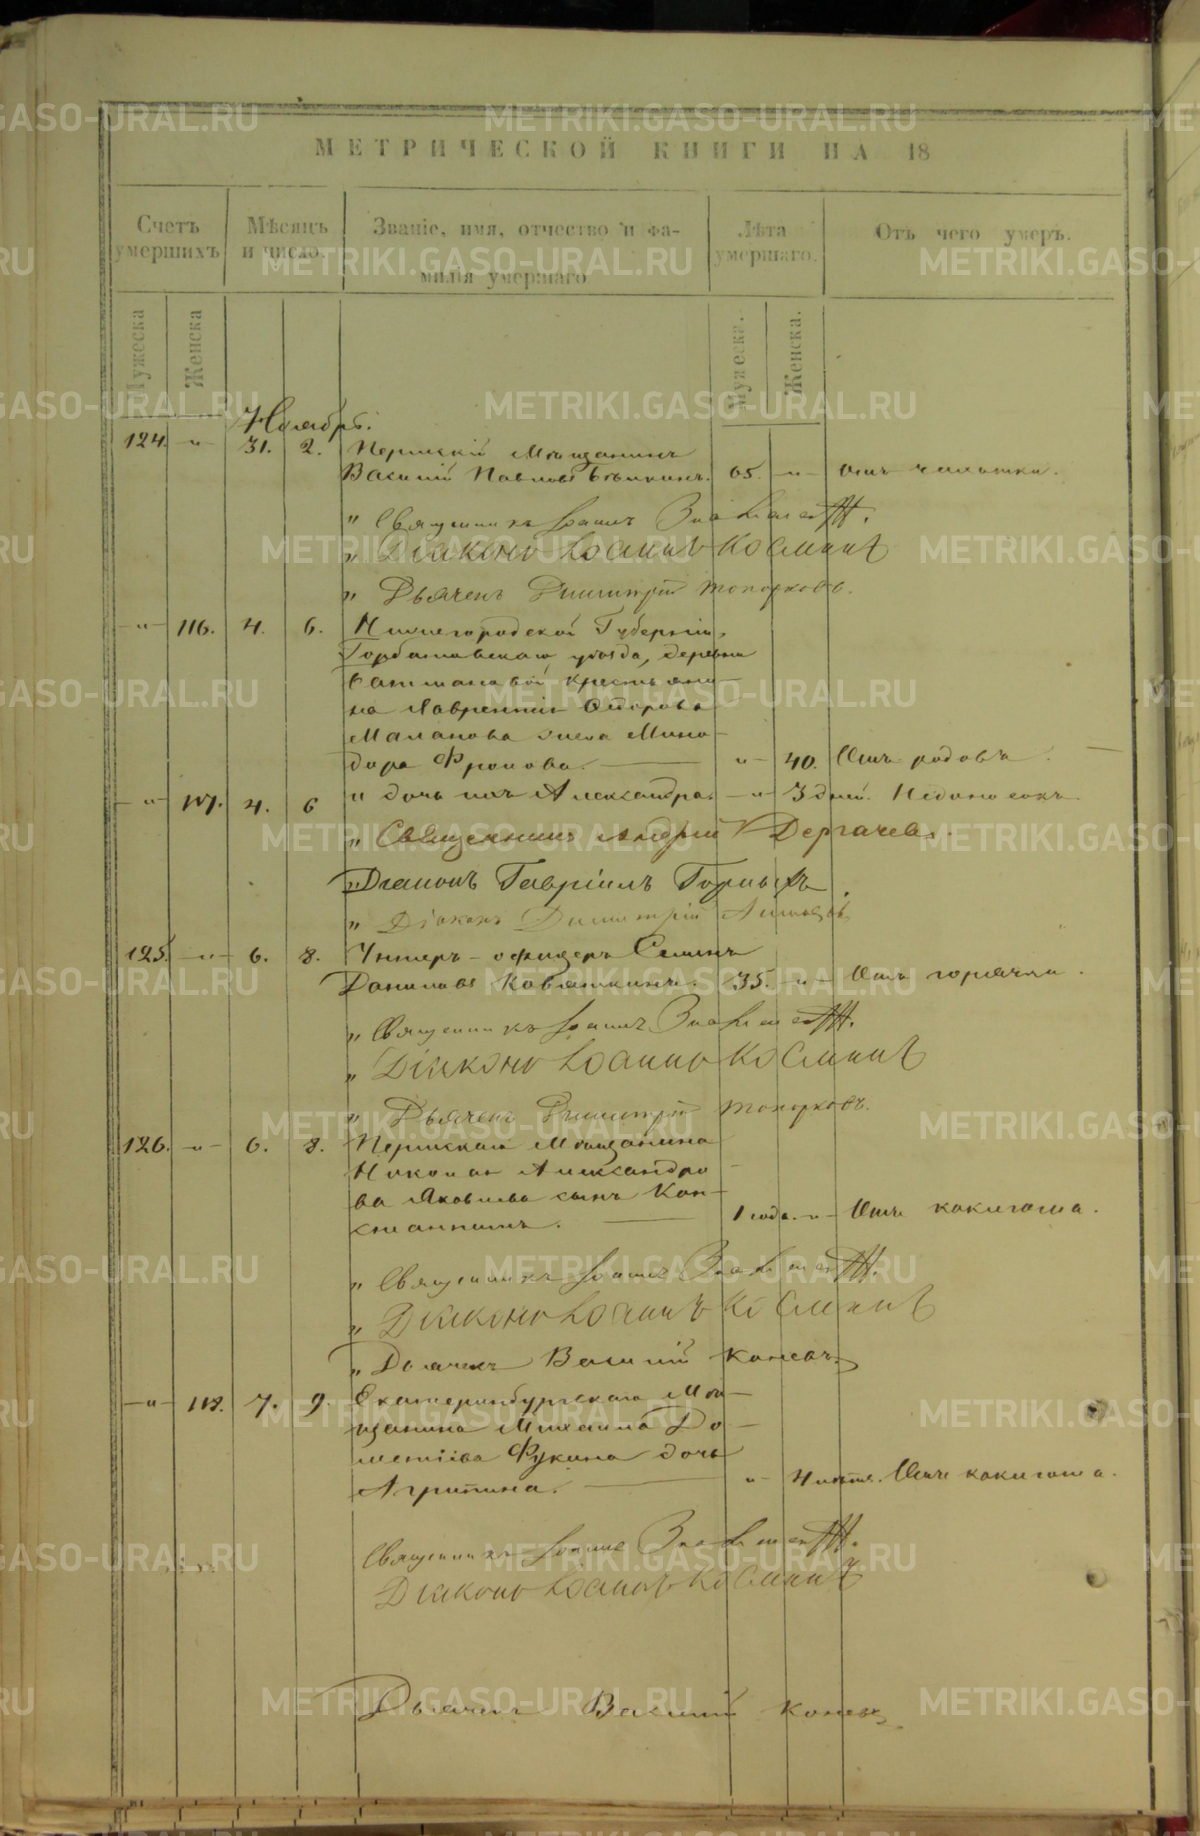 МЕТРИЧЕСКОЙ КНИГИ НА 18
Счетъ умершихъ
Мѣсяцъ и число.
Званіе, имя, отчество и фамилія умершаго
Лѣта умершаго.
Отъ чего умеръ.
Мужеска
Женска
Мужеска.
Женска.
Ноябрь.
124. " 31. 2. Пермскій Мѣщанинъ
Василій Павловъ 65. " Отъ чахотки.
" Священникъ Іоаннъ
" Діаконъ Іоаннъ Косминъ
" Дьячекъ Димитрій Топорковъ.
" 116. 4. 6. Нижегородской Губерніи,
Горбатовскаго уѣзда, деревни
крестьяни-
на Лаврентія Ѳедорова
Маланова жена Мино-
дора Фролова. " 40. Отъ родовъ.
" 117. 4. 6 " дочь ихъ Александра. " 3 дней. Недоносокъ.
" Священникъ Андрей Дергачевъ.
" Діаконъ Гавріилъ Горныхъ.
" Діаконъ Димитрій
125. " 6. 8. Унтеръ-офицеръ Семенъ
Даниловъ Ковяткинъ. 35. " Отъ горячки.
" Священникъ Іоаннъ
" Діаконъ Іоаннъ Косминъ
" Дьячекъ Димитрій Топорковъ.
126. " 6. 8. Пермскаго Мѣщанина
Николая Александро-
ва Яковлева сынъ Кон-
стантинъ. 1 года. " Отъ коклюша.
" Священникъ Іоаннъ
" Діаконъ Іоаннъ Косминъ
" Дьячекъ Василій Коневъ
" 118. 7. 9. Екатеринбургскаго Мѣ-
щанина Михаила До-
метіева Фукина дочь
Агрипина. " 4 Отъ коклюша.
Священникъ Іоаннъ
Діаконъ Іоаннъ Косминъ
Дьячекъ Василій Коневъ
METRIKI.GASO-URAL.RU